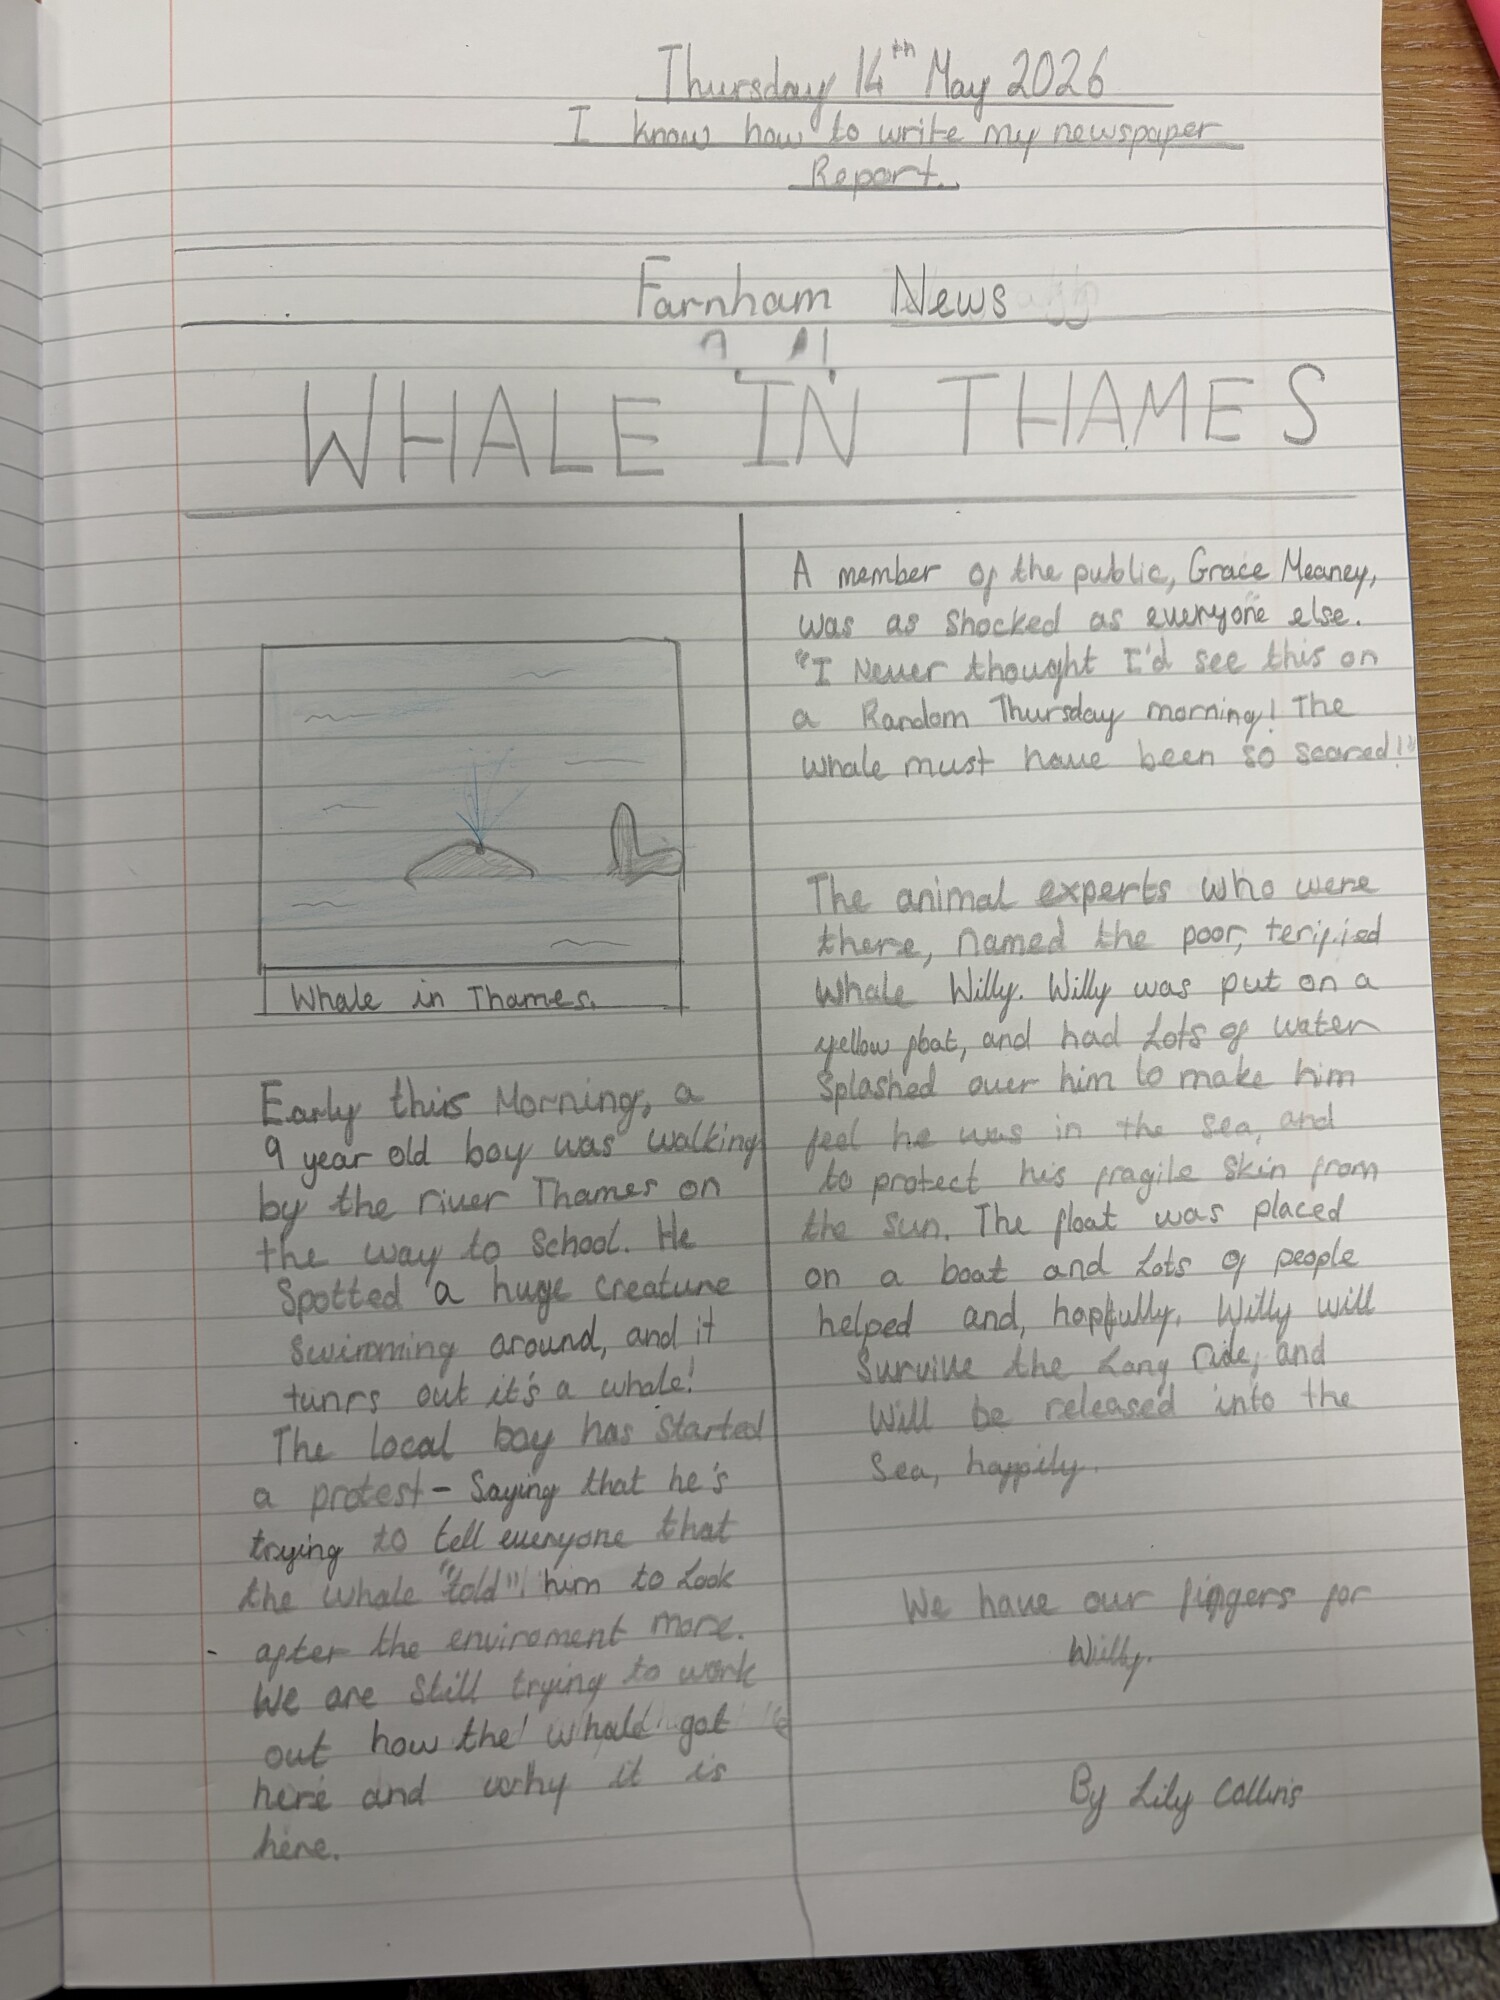 Thursday 14th May 2026
I know how to write my newspaper
Report.
Farnham News
WHALE IN THAMES
Whale in Thames.
Early this Morning, a
9 year old boy was walking
by the river Thames on
the way to School. He
Spotted a huge creature
swimming around, and it
tunrs out it's a whale!
The local boy has Started
a protest - Saying that he's
trying to tell everyone that
the whale "told" him to Look
after the enviroment more.
We are Still trying to work
out how the whale got
here and why it is
here.
A member of the public, Grace Meaney,
was as Shocked as everyone else.
"I Never thought I'd see this on
a Random Thursday morning! The
whale must have been so scared!"
The animal experts who were
there, named the poor, terified
whale Willy. Willy was put on a
yellow float, and had Lots of water
Splashed over him to make him
feel he was in the sea, and
to protect his fragile Skin from
the sun. The float was placed
on a boat and Lots of people
helped and, hopfully, Willy will
Survive the Long ride, and
Will be released into the
Sea, happily.
We have our fingers for
Willy.
By Lily Collins